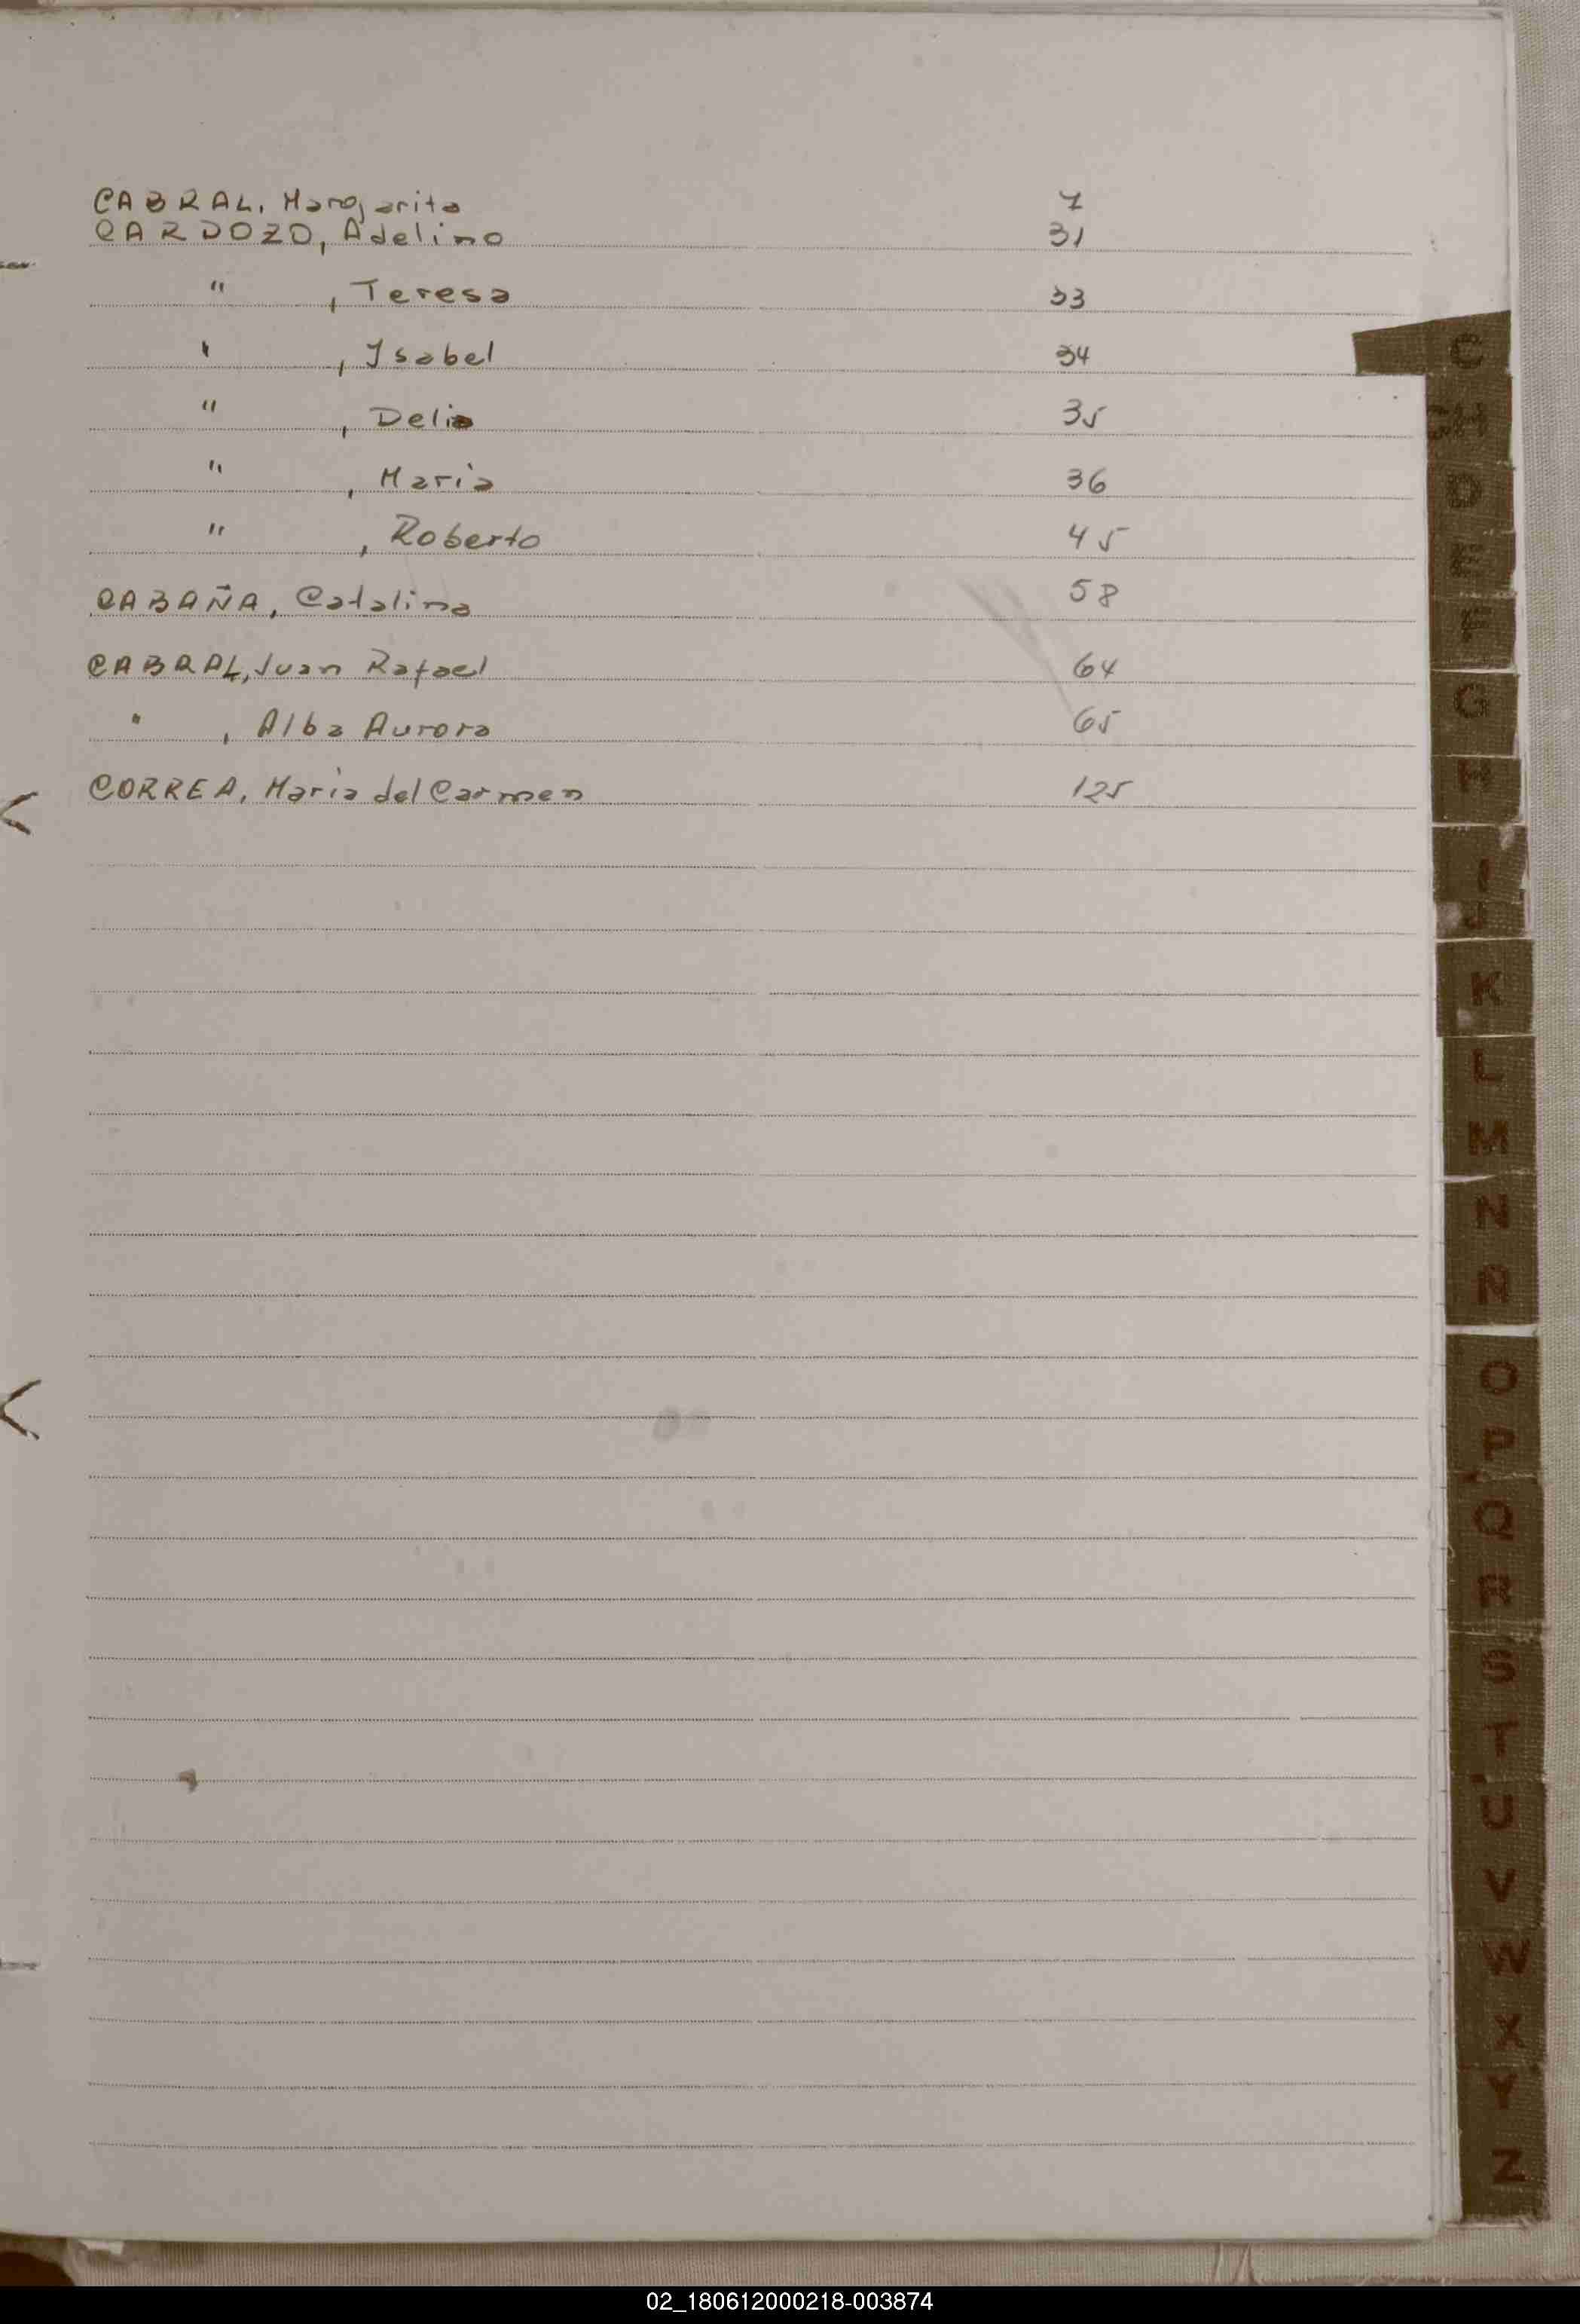 CABRAL, Margarita 7
CARDOZO, Adelino 31
" , Teresa 33
" , Ysabel 34
" , Delia 35
" , Maria 36
" , Roberto 45
CABAÑA, Catalina 58
CABRAL, Juan Rafael 64
" , Alba Aurora 65
CORREA, Maria del Carmen 125
C
CH
D
E
F
G
H
I
J
K
L
M
N
Ñ
O
P
Q
R
S
T
U
V
W
X
Y
Z
02_180612000218-003874